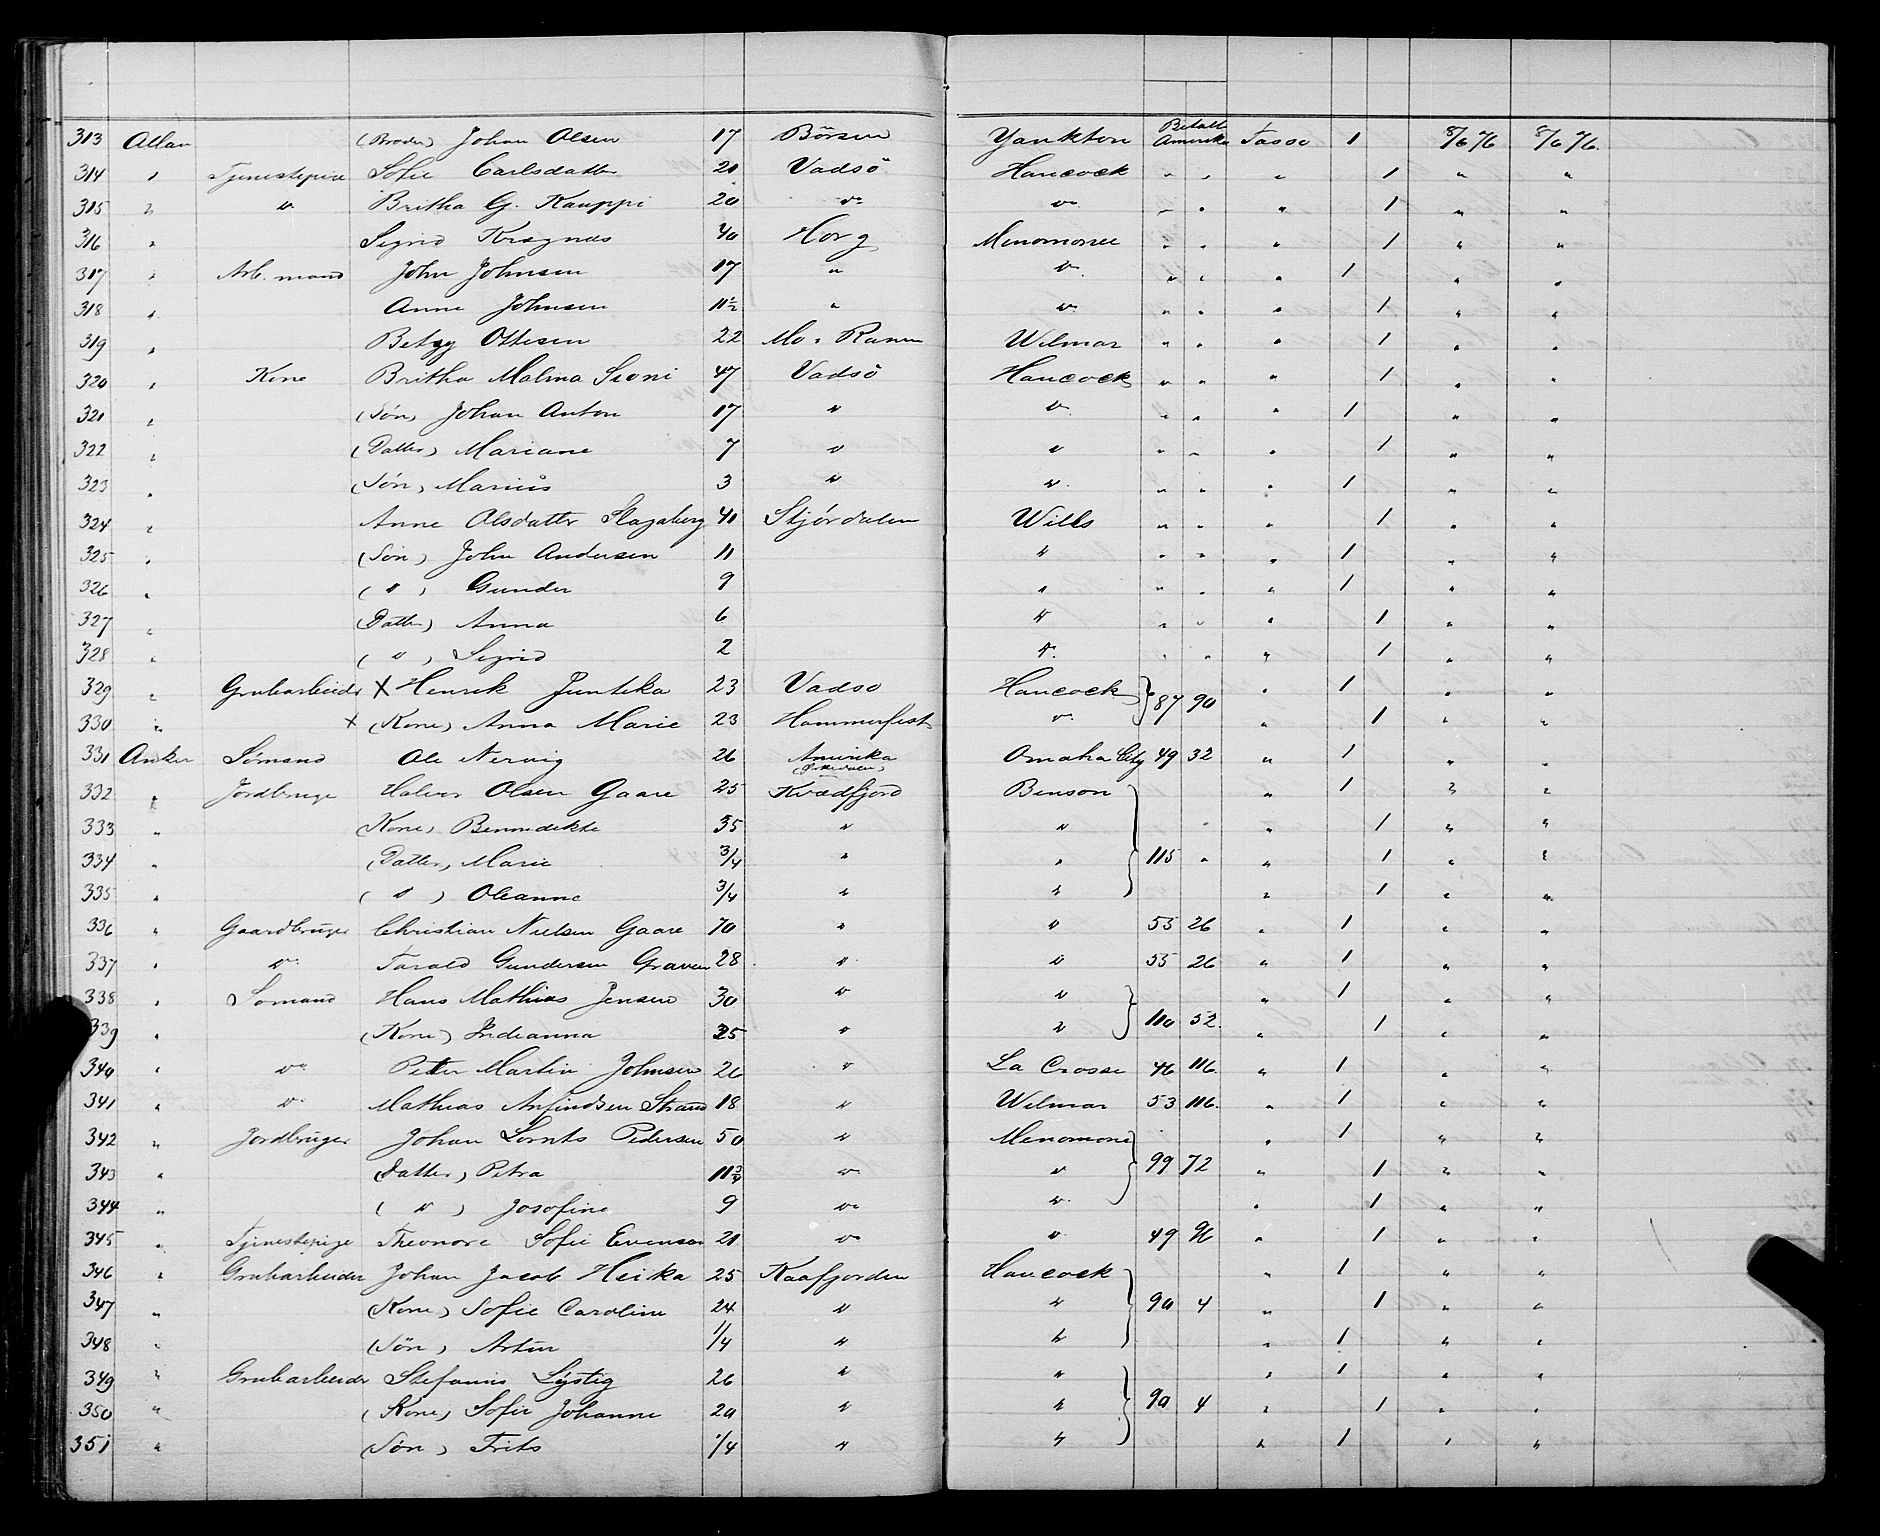 313 Allan (Broder) Johan Olsen 17 Börsen Yankton Betalt Amerika Tasso 1 8/6 76 8/6 76.
314 " Tjenestepige Sofie Carlsdatter 21 Vadsö Hancock " " " 1 " "
315 " " Britha G. Kauppi 20 " " " " " 1 " "
316 " Sigrid Kragnæs 40 Horg Menomonee " " " 1 " "
317 " Arb. mand John Johnsen 17 " " " " " 1 " "
318 " Anne Johnsen 11 1/2 " " " " " 1 " "
319 " Betzy Ottesen 22 Mo i Ranen Wilmar " " " 1 " "
320 " Kone Britha Malina Sioni 47 Vadsö Hancock " " " 1 " "
321 " (Søn) Johan Anton 17 " " " " " 1 " "
322 " (Datter) Mariane 7 " " " " " 1 " "
323 " (Søn) Marius 3 " " " " " 1 " "
324 " Anne Olsdatter 41 Stjørdalen Wills " " " 1 " "
325 " (Søn) John Andersen 11 " " " " 1 " "
326 " ( " ) Gunder 9 " " " " 1 " "
327 " (Datter) Anna 6 " " " " 1 " "
328 " ( " ) Sigrid 2 " " " " 1 " "
329 " Grubarbeider X Henrik Juntika 23 Vadsø Hancock } 87 90 " 1 " "
330 " X (Kone) Anna Marie 23 Hammerfest " " 1 " "
331 Anker Sømand Ole Nervig 26 Amerika Omaha City 49 32 " 1 " "
332 " Jordbruger Halvor Olsen Gaare 25 Kvædfjord Benson " 1 " "
333 " (Kone) Bennedikte 35 " " " " 1 " "
334 " (Datter) Marie 3/4 " " } 115 " " 1 " "
335 " ( " ) Oleanne 3/4 " " " 1 " "
336 " Gaardbruger Christian Nielsen Gaare 70 " " 55 26 " 1 " "
337 " " Tarald Gundersen Graven 28 " " 55 26 " 1 " "
338 " Sømand Hans Mathias Jensen 30 " " " 1 " "
339 " (Kone) Indianna 25 " " } 110 52. " 1 " "
340 " " Peter Martin Johnsen 26 " La Crosse 46 116. " 1 " "
341 " " Mathias Anfindsen Strand 18 " Wilmar 53 116. " 1 " "
342 " Jordbruger Johan Lornts Pedersen 50 " Menomone " 1 " "
343 " (Datter) Petra 11 3/4 " " } 99 72 " 1 " "
344 " ( " ) Josofine 9 " " " 1 " "
345 " Tjenestepige Theonore Sofie Evensen 21 " " 49 96 " 1 " "
346 " Grubarbeider Johan Jacob Heika 25 Kaafjorden Hancock " 1 " "
347 " (Kone) Sofie Caroline 24 " " } 90 4 " 1 " "
348 " (Søn) Artur 1/4 " " " 1 " "
349 " Grubarbeider Stefanus Lystig 26 " " " 1 " "
350 " (Kone) Sofie Johanne 20 " " } 90 4 " 1 " "
351 " (Søn) Frits 1/4 " " " 1 " "